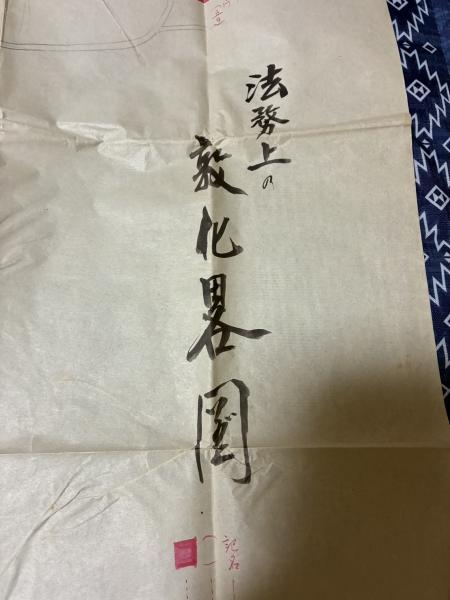 法務上の
敦化畧圖
記名
( )